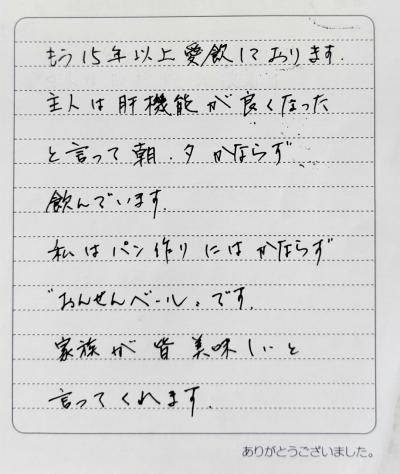 もう15年以上愛飲しております.
主人は肝機能が良くなった
と言って朝.夕かならず
飲んでいます.
私はパン作りにはかならず
"おんせんベール"です.
家族が皆美味しいと
言ってくれます.
ありがとうございました。